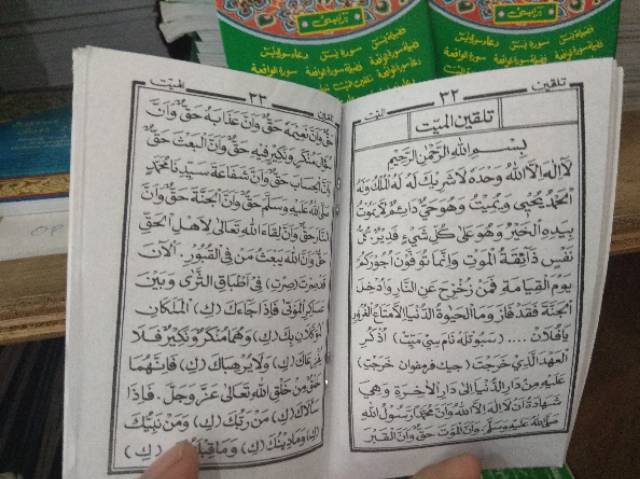 تلقين ٣٢ الميت
تلقين الميّت
بِسْمِ اللهِ الرَّحْمٰنِ الرَّحِيْمِ
لَآاِلٰهَ اِلَّا اللهُ وَحْدَهُ لَاشَرِيْكَ لَهُ لَهُ الْمُلْكُ وَلَهُ
الْحَمْدُ يُحْيِى وَيُمِيْتُ وَهُوَحَيٌّ دَائِمٌ لَايَمُوْتُ
بِيَدِهِ الْخَيْرُ وَهُوَ عَلَى كُلِّ شَيْءٍ قَدِيْرٌ. كُلُّ
نَفْسٍ ذَآئِقَةُ الْمَوْتِ وَاِنَّمَا تُوَفَّوْنَ اُجُوْرَكُمْ
يَوْمَ الْقِيَامَةِ فَمَنْ زُحْزِحَ عَنِ النَّارِ وَاُدْخِلَ
الْجَنَّةَ فَقَدْ فَازَ وَمَا الْحَيٰوةُ الدُّنْيَا اِلَّامَتَاعُ الْغُرُوْرِ
يَافُلَانْ .... (سبوتله نام سي ميت) اُذْكُرِ
الْعَهْدَ الَّذِي خَرَجْتَ (جيك فرمفوان خَرَجْتِ)
عَلَيْهِ مِنْ دَارِ الدُّنْيَا اِلَى دَارِ الْاٰخِرَةِ وَهِيَ
شَهَادَةُ اَنْ لَآاِلٰهَ اِلَّا اللهُ وَاَنَّ مُحَمَّدًا رَسُوْلُ اللهِ
صَلَّى اللهُ عَلَيْهِ وَسَلَّمَ. وَاَنَّ الْمَوْتَ حَقٌّ وَاَنَّ الْقَبْرَ
تلقين ٣٣ الميت
حَقٌّ وَاَنَّ نَعِيْمَهُ حَقٌّ وَاَنَّ عَذَابَهُ حَقٌّ وَاَنَّ
سُؤَالَ مُنْكَرٍ وَنَكِيْرٍ فِيْهِ حَقٌّ وَاَنَّ الْبَعْثَ حَقٌّ
وَاَنَّ الْحِسَابَ حَقٌّ وَاَنَّ شَفَاعَةَ سَيِّدِنَا مُحَمَّدٍ
صَلَّى اللهُ عَلَيْهِ وَسَلَّمَ حَقٌّ وَاَنَّ الْجَنَّةَ حَقٌّ وَاَنَّ
النَّارَ حَقٌّ وَاَنَّ لِقَاءَ اللهِ تَعَالَى لِاَهْلِ الْحَقِّ
حَقٌّ وَاَنَّ اللهَ يَبْعَثُ مَنْ فِي الْقُبُوْرِ. اَلْآنَ
قَدْ صِرْتَ (صِرْتِ) فِي اَطْبَاقِ الثَّرٰى وَبَيْنَ
عَسَاكِرِ الْمَوْتٰى فَاِذَا جَاءَكَ (كِ) الْمَلَكَانِ
الْمُوَكَّلَانِ بِكَ (كِ) وَهُمَا مُنْكَرٌ وَنَكِيْرٌ فَلَا
يُفْزِعَاكَ (كِ) وَلَايُرْهِبَاكَ (كِ) فَاِنَّهُمَا
خَلْقٌ مِنْ خَلْقِ اللهِ تَعَالَى عَزَّ وَجَلَّ. فَاِذَا
سَأَلَاكَ (كِ) مَنْ رَبُّكَ (كِ) وَمَنْ نَبِيُّكَ
(كِ) وَمَادِيْنُكَ (كِ) وَمَاقِبْلَتُكَ (كِ)
فضيلة يس سورة يس دعاء سورة يس
سورة الواقعة